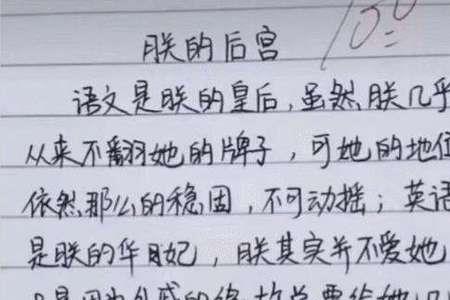 100
朕的后宫
语文是朕的皇后,虽然朕几乎
从来不翻她的牌子,可她的地位
依然那么的稳固,不可动摇;英语
是朕的华妃,朕其实并不爱她